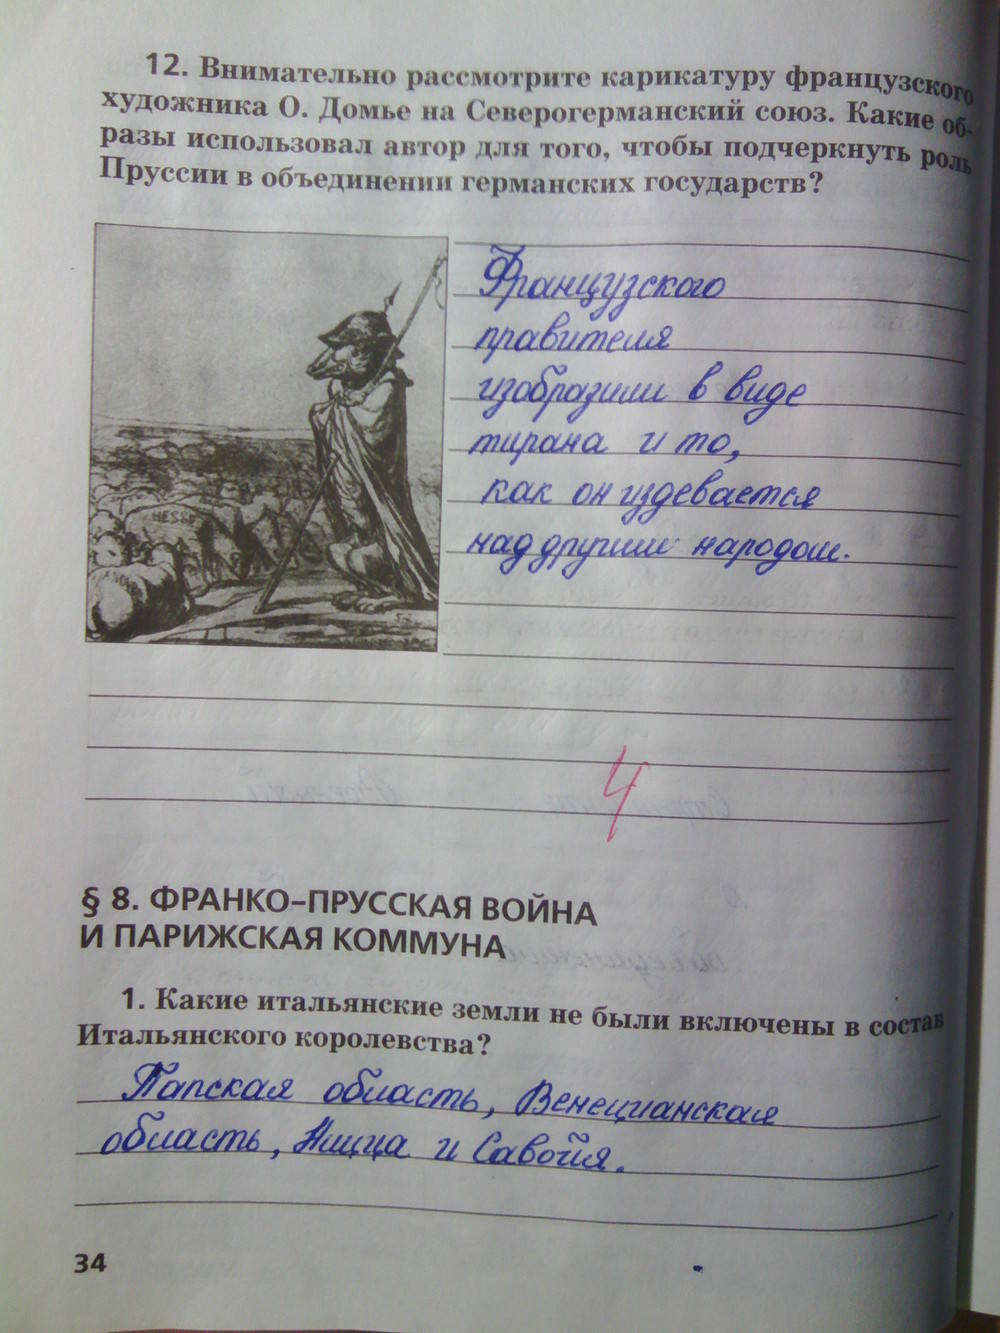 12. Внимательно рассмотрите карикатуру французского
художника О. Домье на Северогерманский союз. Какие об-
разы использовал автор для того, чтобы подчеркнуть роль
Пруссии в объединении германских государств?
HESSE
Французского
правителя
изобразили в виде
тирана и то,
как он издевается
над другими народом.
4
§ 8. ФРАНКО-ПРУССКАЯ ВОЙНА
И ПАРИЖСКАЯ КОММУНА
1. Какие итальянские земли не были включены в состав
Итальянского королевства?
Папская область, Венецианская
область, Ницца и Савойя.
34